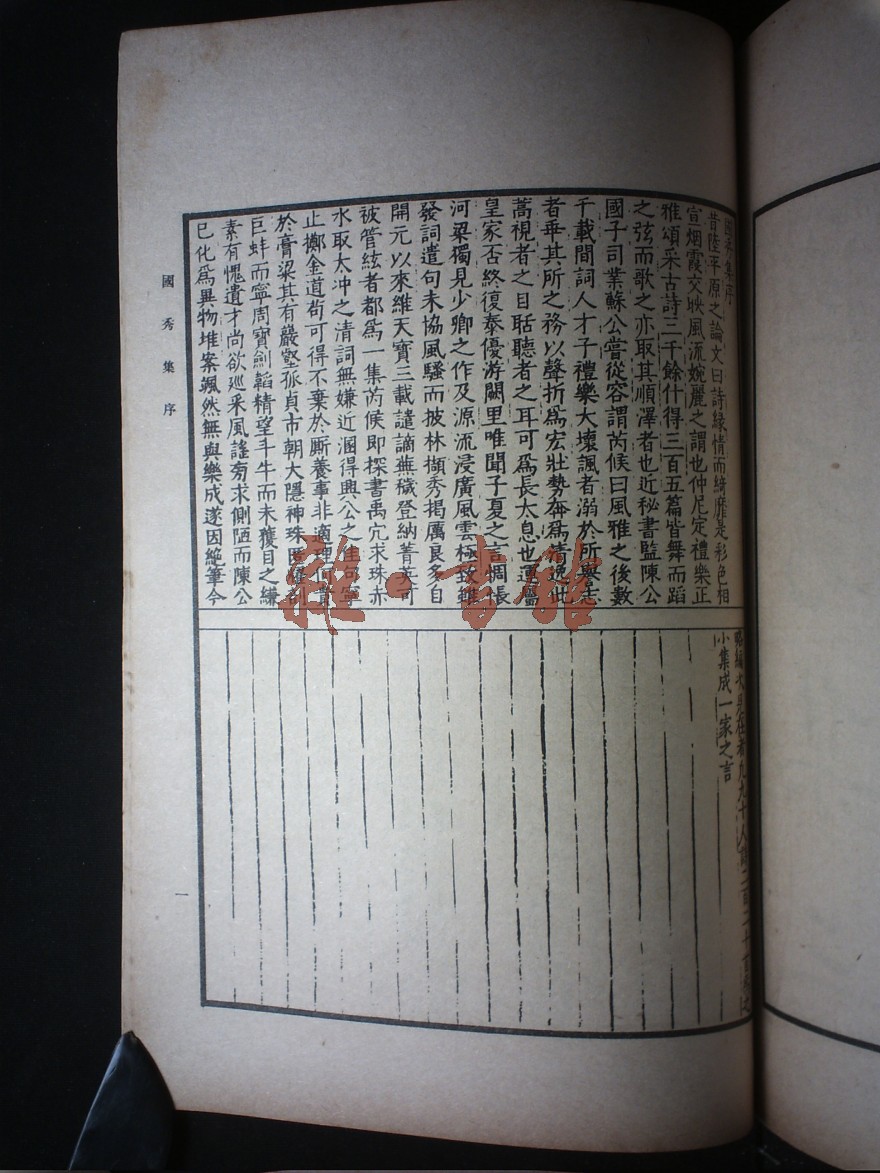 國秀集序
昔陸平原之論文曰詩緣情而綺靡是彩色相
宣烟霞交映風流婉麗之謂也仲尼定禮樂正
雅頌采古詩三千餘什得三百五篇皆舞而蹈
之弦而歌之亦取其順澤者也近秘書監陳公
國子司業蘇公嘗從容謂芮候曰風雅之後數
千載間詞人才子禮樂大壞諷者溺於所譽志
者乖其所之務以聲折爲宏壯勢奔爲清逸此
蒿視者之目聒聽者之耳可爲長太息也運屬
皇家否終復泰優游闕里唯聞子夏之言惆悵
河梁獨見少卿之作及源流浸廣風雲極致雖
發詞遣句未協風騷而披林擷秀揭厲良多自
開元以來維天寶三載譴謫蕪穢登納菁英可
被管絃者都爲一集芮候即探書禹穴求珠赤
水取太冲之清詞無嫌近溷得興公之佳句寧
止擲金道苟可得不棄於厮養事非適理何貴
於膏粱其有巖壑孤貞市朝大隱神珠匿
巨蚌而寧周寶劍韜精望斗牛而未獲目之縑
素有愧遺才尚欲巡采風謠旁求側陋而陳公
已化爲異物堆案颯然無與樂成遂因絶筆今
略編次見在者凡九十人詩二百二十首爲之
小集成一家之言
國秀集序
一
雜·書館